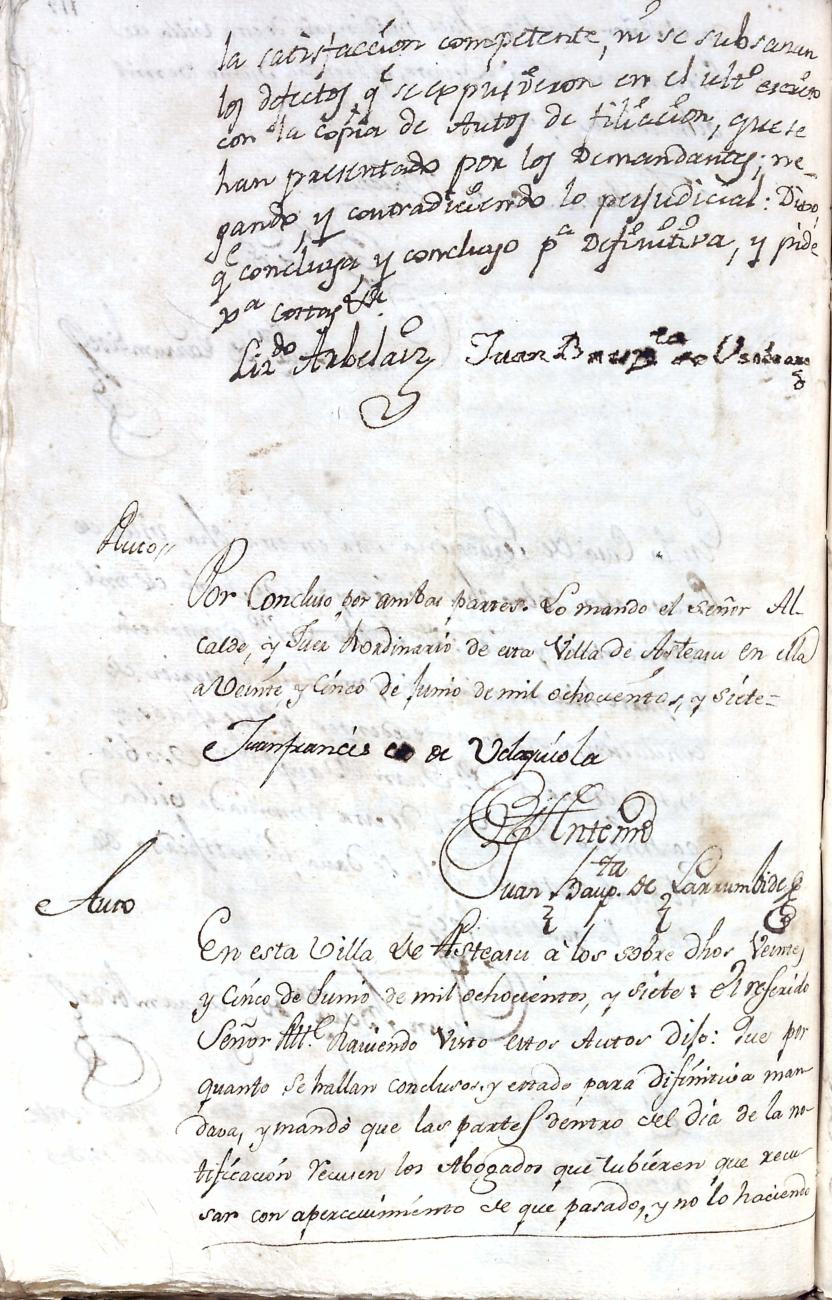 la satisfaccion competente, ni se subsanan
los defectos, qe se expusieron en el ulto escrito
con la copia de Autos de filiacion, que se
han presentado por los Demandantes; ne-
gando, y contradiciendo lo perjudicial: Dixo,
qe concluya, y concluyo pa Definitiva, y pide
xa costas &a.
Lizdo Arbelaiz Juan Baupta de
Auto//
Por Concluso por ambas partes. Lo mando el Señor Al-
calde, y Juez hordinario de esta Villa de Asteasu en ella
a Veinte, y Cinco de Junio de mil ochocientos, y siete=
Juanfrancisco de Velaquiola
Antemi
Juan Baupta de Larrumbide
Auto
En esta Villa de Asteasu à los sobre dhos Veinte,
y Cinco de Junio de mil ochocientos, y siete: el referido
Señor Alle haviendo Visto estos Autos dijo: Que por
quanto se hallan conclusos, y estado para difinitiva man-
dava, y mandò que las partes dentro del dia de la no-
tificación recusen los Abogados que tubieren que recu-
sar con apercevimiento de que pasado, y no lo haciendo